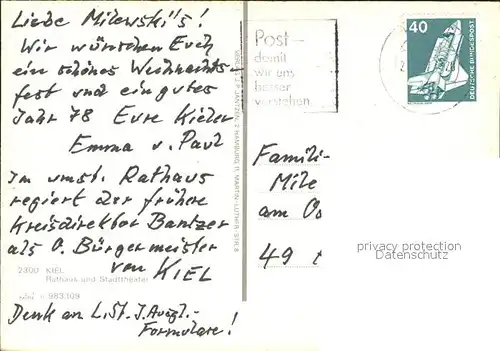 Liebe Milewski's!
Wir wünschen Euch
ein schönes Weihnachts-
fest und ein gutes
Jahr 78 Eure Kieler
Emma u. Paul
Im umst. Rathaus
regiert der frühere
Kreisdirektor Bantzer
als O. Bürgermeister
von KIEL
2300 KIEL
Rathaus und Stadttheater
983.109
Denk an L.St. J. Ausgl.-
Formulare!
Post-
damit
wir uns
besser
verstehen
40
DEUTSCHE BUNDESPOST
Famili-
Mile
am
49
privacy protection
Datenschutz